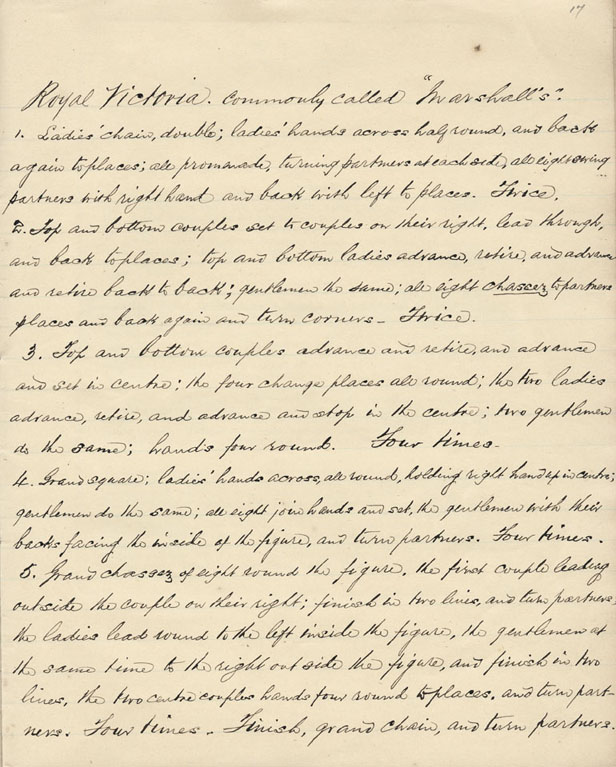 17
Royal Victoria. commonly called "Marshall's".
1. Ladies' chain, double; ladies' hands across half round, and back
again to places; all promenade, turning partners at each side, all eight swing
partners with right hand and back with left to places. Twice.
2. Top and bottom couples set to couples on their right, lead through,
and back to places; top and bottom ladies advance, retire, and advance
and retire back to back; gentlemen the same; all eight chassez to partners
places and back again and turn corners - Twice.
3. Top and bottom couples advance and retire, and advance
and set in centre; the four change places all round; the two ladies
advance, retire, and advance and stop in the centre; two gentlemen
do the same; hands four round. Four times -
4. Grand square; ladies' hands across, all round, holding right hand up in centre;
gentlemen do the same; all eight join hands and set, the gentlemen with their
backs facing the inside of the figure, and turn partners. Four times.
5. Grand chassez of eight round the figure, the first couple leading
outside the couple on their right; finish in two lines, and turn partners,
the ladies lead round to the left inside the figure, the gentlemen at
the same time to the right outside the figure, and finish in two
lines, the two centre couples hands four round to places, and turn part-
ners. Four times - Finish, grand chain, and turn partners.